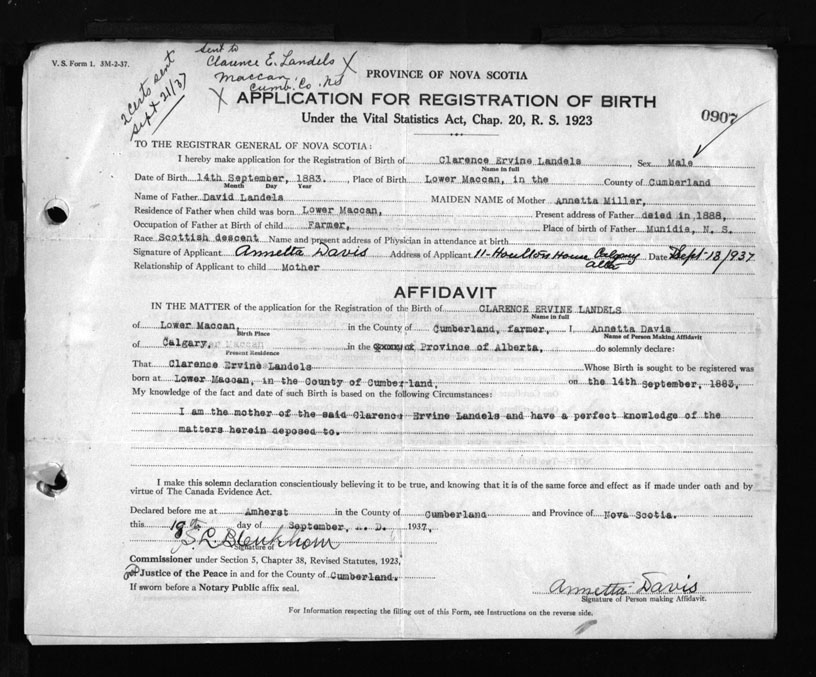 V. S. Form 1. 3M-2-37.
2 Certs sent
Sept 21/37
sent to
Clarence E. Landels X
Maccan
X Cumb. Co. NS
PROVINCE OF NOVA SCOTIA
APPLICATION FOR REGISTRATION OF BIRTH
Under the Vital Statistics Act, Chap. 20, R. S. 1923
0907
TO THE REGISTRAR GENERAL OF NOVA SCOTIA:
I hereby make application for the Registration of Birth of Clarence Ervine Landels, Sex Male
Name in full
Date of Birth 14th September, 1883. Place of Birth Lower Maccan, in the County of Cumberland
Month Day Year
Name of Father David Landels MAIDEN NAME of Mother Annetta Miller,
Residence of Father when child was born Lower Maccan, Present address of Father deied in 1888,
Occupation of Father at Birth of child Farmer, Place of birth of Father Munidie, N. S.
Race Scottish descent Name and present address of Physician in attendance at birth
Signature of Applicant Annetta Davis Address of Applicant 11-Houlton House Calgary Alta Date Sept-18/937
Relationship of Applicant to child Mother
AFFIDAVIT
IN THE MATTER of the application for the Registration of the Birth of CLARENCE ERVINE LANDELS
Name in full
of Lower Maccan, in the County of Cumberland, farmer, I, Annetta Davis
Birth Place Name of Person Making Affidavit
of Calgary, in the Province of Alberta, do solemnly declare:
Present Residence
That Clarence Ervine Landels Whose Birth is sought to be registered was
born at Lower Maccan, in the County of Cumberland, on the 14th September, 1883,
My knowledge of the fact and date of such Birth is based on the following Circumstances:
I am the mother of the said Clarence Ervine Landels and have a perfect knowledge of the
matters herein deposed to.
I make this solemn declaration conscientiously believing it to be true, and knowing that it is of the same force and effect as if made under oath and by
virtue of The Canada Evidence Act.
Declared before me at Amherst in the County of Cumberland and Province of Nova Scotia.
this 18th day of September, A. D. 1937,
Signature of
Commissioner under Section 5, Chapter 38, Revised Statutes, 1923,
or Justice of the Peace in and for the County of Cumberland.
If sworn before a Notary Public affix seal.
Annetta Davis
Signature of Person making Affidavit.
For Information respecting the filling out of this Form, see Instructions on the reverse side.